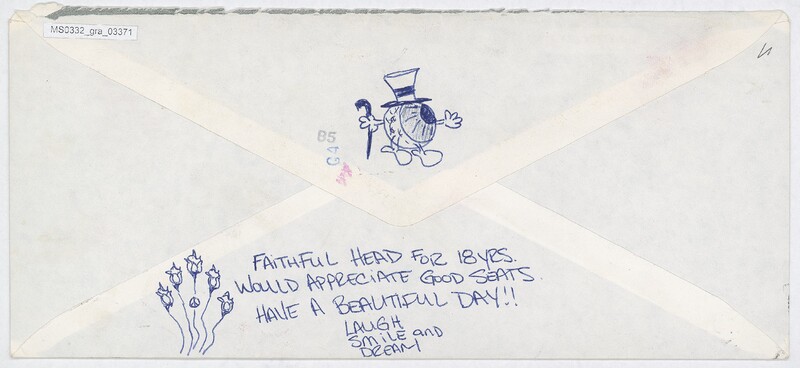 MS0332_gra_03371
85
G4
FAITHFUL HEAD FOR 18 YRS.
WOULD APPRECIATE GOOD SEATS.
HAVE A BEAUTIFUL DAY!!
LAUGH
SMiLE and
DREAM